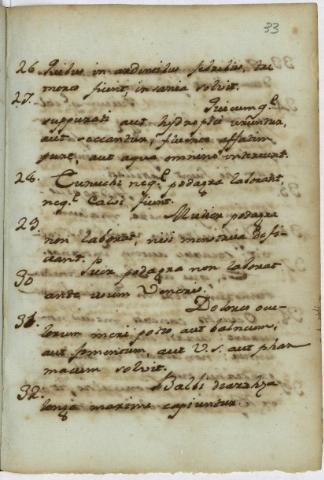 33
26 Quibus in ardentibus febribus, tre
mores fiunt, insania solvit.
27. Quicumq.
suppurati aut hydropici uruntur,
aut seccantur, fluente affatim
pure, aut aqua omnino intereunt.
28. Eunuchi neq. podagra laborant,
neq. calvi fiunt.
29 Mulier podagra
non laborat, nisi menstrua defi
ciant.
30 Puer podagra non laborat
ante usum Veneris.
31. Dolores ocu
lorum meri potio, aut balneum,
aut fomentum, aut V. S. aut phar
macum solvit.
32. Balbi diarrhæa
longa maxime capiuntur